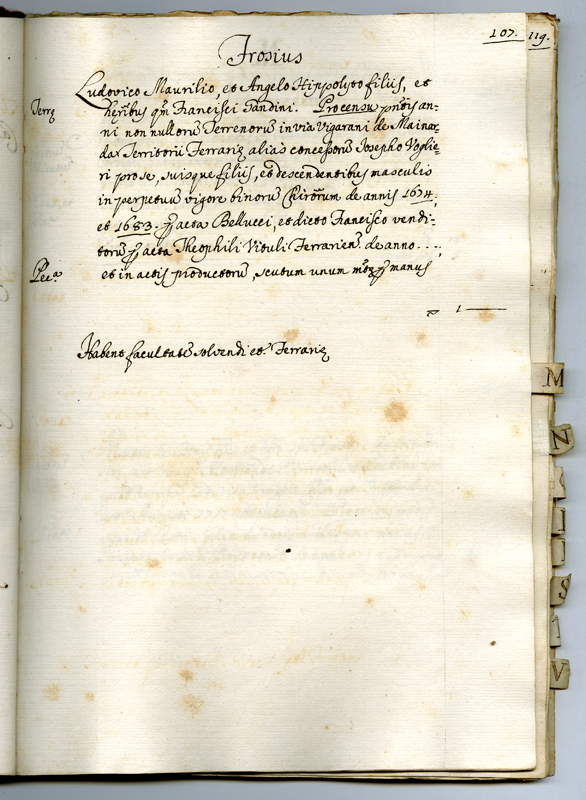 107. 119.
Trosius
Ludovico Maurilio, et Angelo Hippolyto filijs, et
Terrę hęribus qm Francisci Tandini. Pro censu pñtis an-
ni non nullorũ Terrenorũ in via Vigarani de Mainar-
da Territorij Ferrarię alias concessorũ Josepho Voglie-
ri pro se, suisque filijs, et descendentibus masculis
in perpetuũ vigore binorũ Chirõrum de annis 1674.
et 1683. ꝑ acta Bellucci, et dicto Francisco vendi-
torũ ꝑ acta Theophili Vituli Ferrarien. de anno ....,
Pec.a et in actis productorũ, scutum unum mõtę ꝑ manus
1
Habent facultatẽ solvendi et. Ferrarię
M
N
S
V